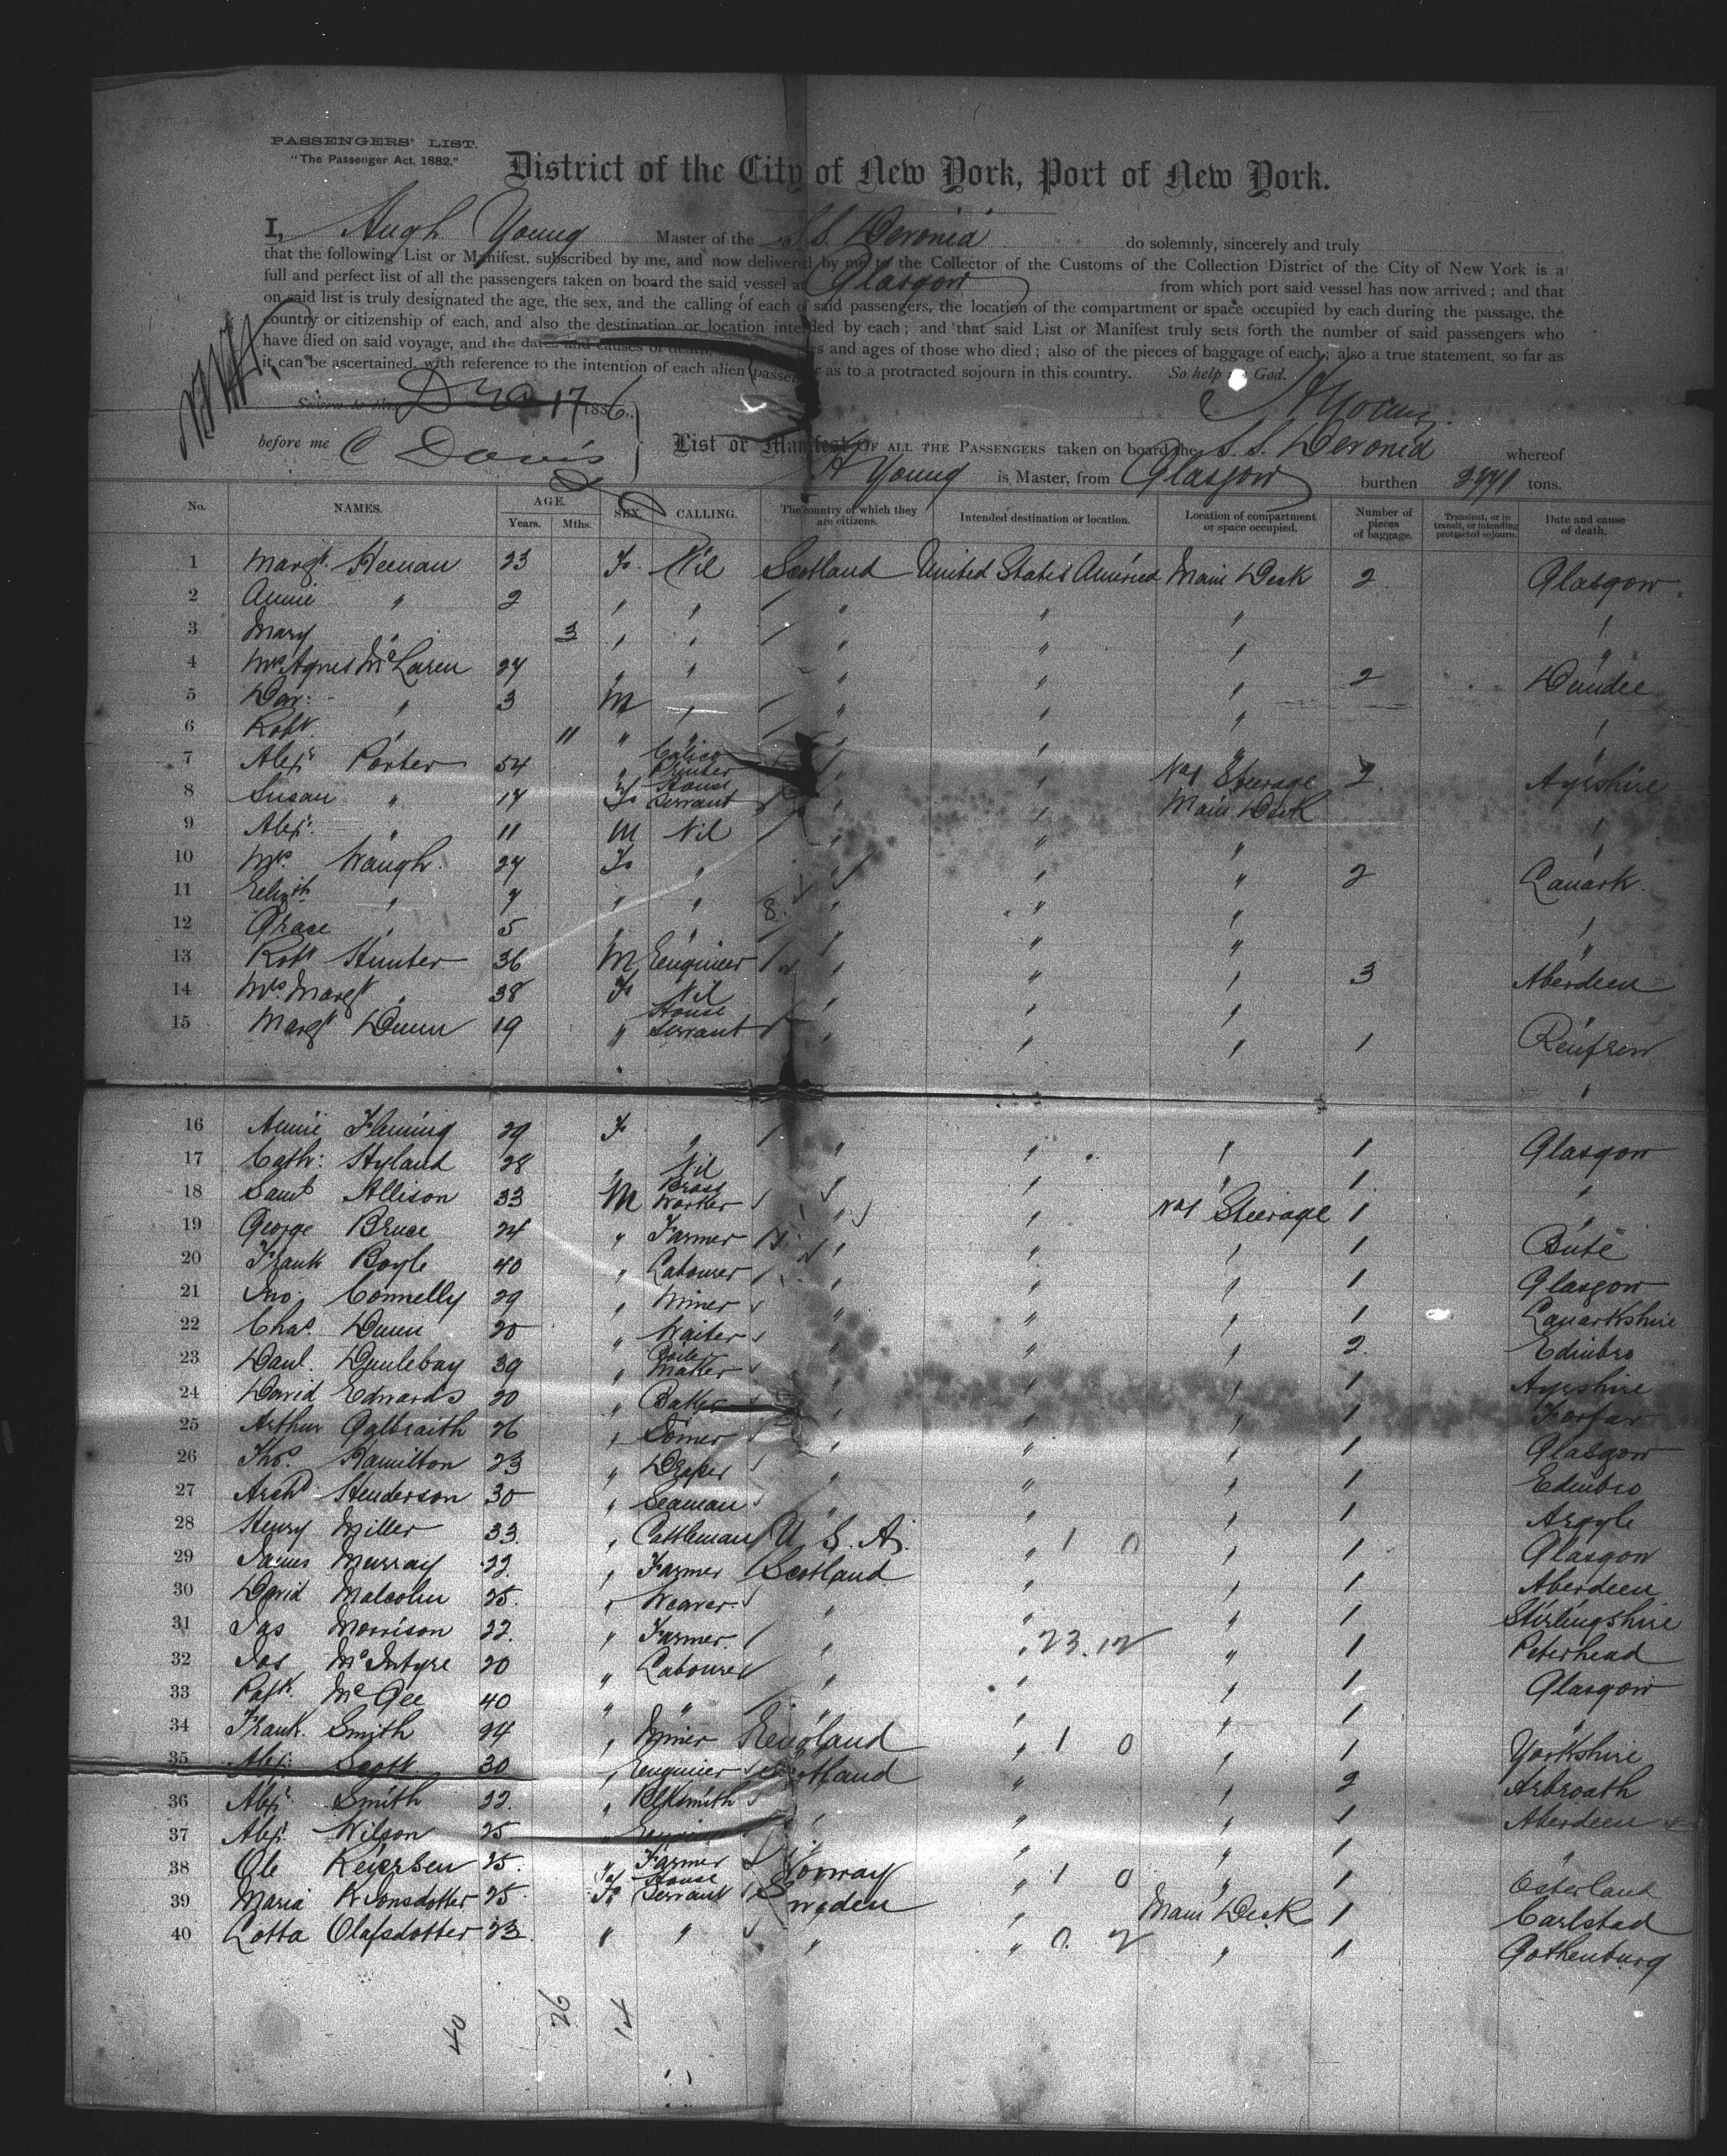 PASSENGERS' LIST.
"The Passenger Act, 1882."
District of the City of New York, Port of New York.
I, Hugh Young Master of the S.S. Devonia do solemnly, sincerely and truly
that the following List or Manifest, subscribed by me, and now delivered by me to the Collector of the Customs of the Collection District of the City of New York is a
full and perfect list of all the passengers taken on board the said vessel at Glasgow from which port said vessel has now arrived; and that
on said list is truly designated the age, the sex, and the calling of each of said passengers, the location of the compartment or space occupied by each during the passage, the
country or citizenship of each, and also the destination or location intended by each; and that said List or Manifest truly sets forth the number of said passengers who
have died on said voyage, and the dates and causes of death, and ages of those who died; also of the pieces of baggage of each; also a true statement, so far as
it can be ascertained, with reference to the intention of each alien passenger as to a protracted sojourn in this country. So help me God.
Sworn to this 17 1886 H Young
before me C Davis List or Manifest OF ALL THE PASSENGERS taken on board the S.S. Devonia whereof
H Young is Master, from Glasgow burthen tons.
No. NAMES. AGE. Years. Mths. SEX. CALLING. The country of which they are citizens. Intended destination or location. Location of compartment or space occupied. Number of pieces of baggage. Transient, or in transit, or intending protracted sojourn. Date and cause of death.
1 Margt. Keenan 23 F. Nil Scotland United States America Main Deck 2 Glasgow
2 Annie " 2 " " " " " "
3 Mary " 3 " " " " " "
4 Mrs Agnes McLaren 27 " " " " " 2 Dundee
5 Dav: " 3 M " " " " "
6 Robt. " 11 " " " " " "
7 Alexr Porter 54 " Calico Printer " " No 1 Steerage 2 Ayrshire
8 Susan " 17 F House Servant " " Main Deck
9 Alexr. " 11 M Nil " " " "
10 Mrs. Waugh 27 F " " " " 2 Lanark
11 Elizth " 7 " " " " " "
12 Grace " 5 " " " " " "
13 Robt Hunter 36 M Engineer " " " 3 Aberdeen
14 Mrs. Margt " 38 F Nil " " " "
15 Margt Dunn 19 " House Servant " " " 1 Renfrew
16 Annie Fleming 29 F " " " " 1 Glasgow
17 Cath: Hyland 28 " Nil " " " 1 "
18 Saml Allison 33 M Brass Worker " " No 1 Steerage 1 "
19 George Bruce 24 " Farmer " " " 1 Bute
20 Frank Boyle 40 " Labourer " " " 1 Glasgow
21 Jno. Connelly 29 " Miner " " " 1 Lanarkshire
22 Chas. Dunn 20 " Waiter " " " 2 Edinbro
23 Danl. 39 " Boiler Maker " " " 1 Ayrshire
24 David Edwards 20 " Baker " " " 1 Forfar
25 Arthur Galbraith 26 " " " " 1 Glasgow
26 Thos. Hamilton 23 " Draper " " " 1 Edinbro
27 Archd Henderson 30 " Seaman " " " 1 Argyle
28 Henry Miller 33 " Cattleman U.S.A. " 1 0 " 1 Glasgow
29 James Murray 22 " Farmer Scotland " " 1 Aberdeen
30 David Malcolm 25 " Weaver " " " 1 Stirlingshire
31 Jas Morrison 22 " Farmer " " 23.12 " 1 Peterhead
32 Jas McIntyre 20 " Labourer " " " 1 Glasgow
33 Patk. McGee 40 " " " " " 1 "
34 Frank Smith 24 " Miner England " 1 0 " 1 Yorkshire
35 Alexr. Scott 30 " Engineer Scotland " " 2 Arbroath
36 Alexr. Smith 22 " Blksmith " " " 1 Aberdeen
37 Alexr. Wilson 25 " " " " 1 "
38 Ole 25 " Farmer Norway " 1 0 " 1 Osterland
39 Maria 25 F House Servant Sweden " Main Deck 1 Carlstad
40 Lotta Olafsdotter 23 " " " " 0 2 " 1 Gothenburg
40 26 14